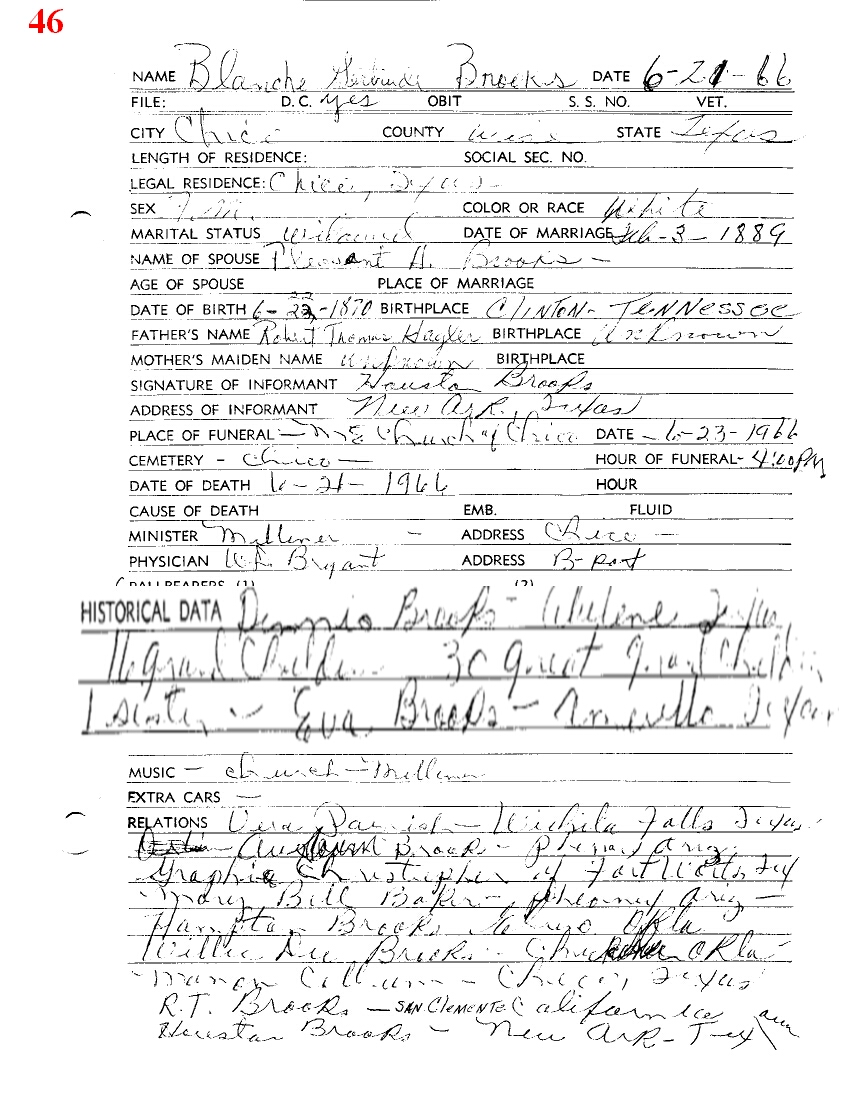 46
NAME Blanche Gertrude Brooks DATE 6-21-66
FILE: D.C. yes OBIT S. S. NO. VET.
CITY Chico COUNTY Wise STATE Texas
LENGTH OF RESIDENCE: SOCIAL SEC. NO.
LEGAL RESIDENCE: Chico, Texas
SEX COLOR OR RACE White
MARITAL STATUS Widowed DATE OF MARRIAGE Feb-3-1889
NAME OF SPOUSE Pleasant H. Brooks -
AGE OF SPOUSE PLACE OF MARRIAGE
DATE OF BIRTH 6-22-1870 BIRTHPLACE CLINTON- TENNESSOE
FATHER'S NAME Robert Thomas Hagler BIRTHPLACE Unknown
MOTHER'S MAIDEN NAME unknown BIRTHPLACE
SIGNATURE OF INFORMANT Houston Brooks
ADDRESS OF INFORMANT New Ark, Texas
PLACE OF FUNERAL - M E Church of Chico DATE - 6-23-1966
CEMETERY - Chico - HOUR OF FUNERAL- 4:00 PM
DATE OF DEATH 6-21-1966 HOUR
CAUSE OF DEATH EMB. FLUID
MINISTER Millener - ADDRESS Chico -
PHYSICIAN Bryant ADDRESS B-port
PALLBEARERS (1) (2)
HISTORICAL DATA Dennis Brooks - Abilene Texas
16 grand Children 30 great grand Children
1 sister - Eva Brooks - Amarillo Texas
MUSIC - Church - Millener
EXTRA CARS -
RELATIONS Vera Parrish - Wichita Falls Texas
Brooks - Phoenix Ariz.
Graphie Christopher of Fort Worth Tex
Mary Bill Baker - Phoenix Ariz -
Hampton Brooks Okla
Willie Lee Brooks - Okla -
Collum - Chico, Texas
R.T. Brooks - SAN CLEMENTE California
Houston Brooks - New Ark - Tex